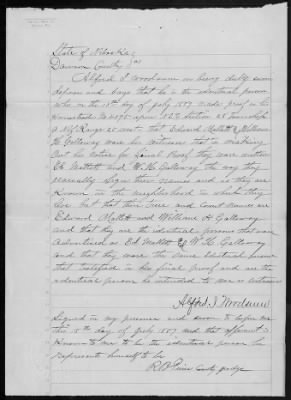 State of Nebraska
Dawson County } ss
Alford J. Woodsum being duly sworn
deposes and says that he is the identical person
who on the 18th day of July 1887 made proof on his
Homestead No upon section 28 Township
9 N of Range 25 west, that Edward Mallett & William
H. Galloway were his witnesses that in making
out his notice for final Proof they were written
Ed Mallett and W. H. Galloway the way they
usually sign their names and as they are
known in the neighborhood in which they
live but that their true and Correct Names are
Edward Mallett and William H Galloway
and that they are the identical persons that were
advertised as Ed Mallett & W H Galloway
and that they were the same identical persons
that testified in his final proof and are the
identical persons he intended to use as witnesses
Alford J. Woodsum
Signed in my presence and sworn to before me
this 18th day of July 1887 and that affiant is
Known to me to be the identical person he
represents himself to be
County Judge